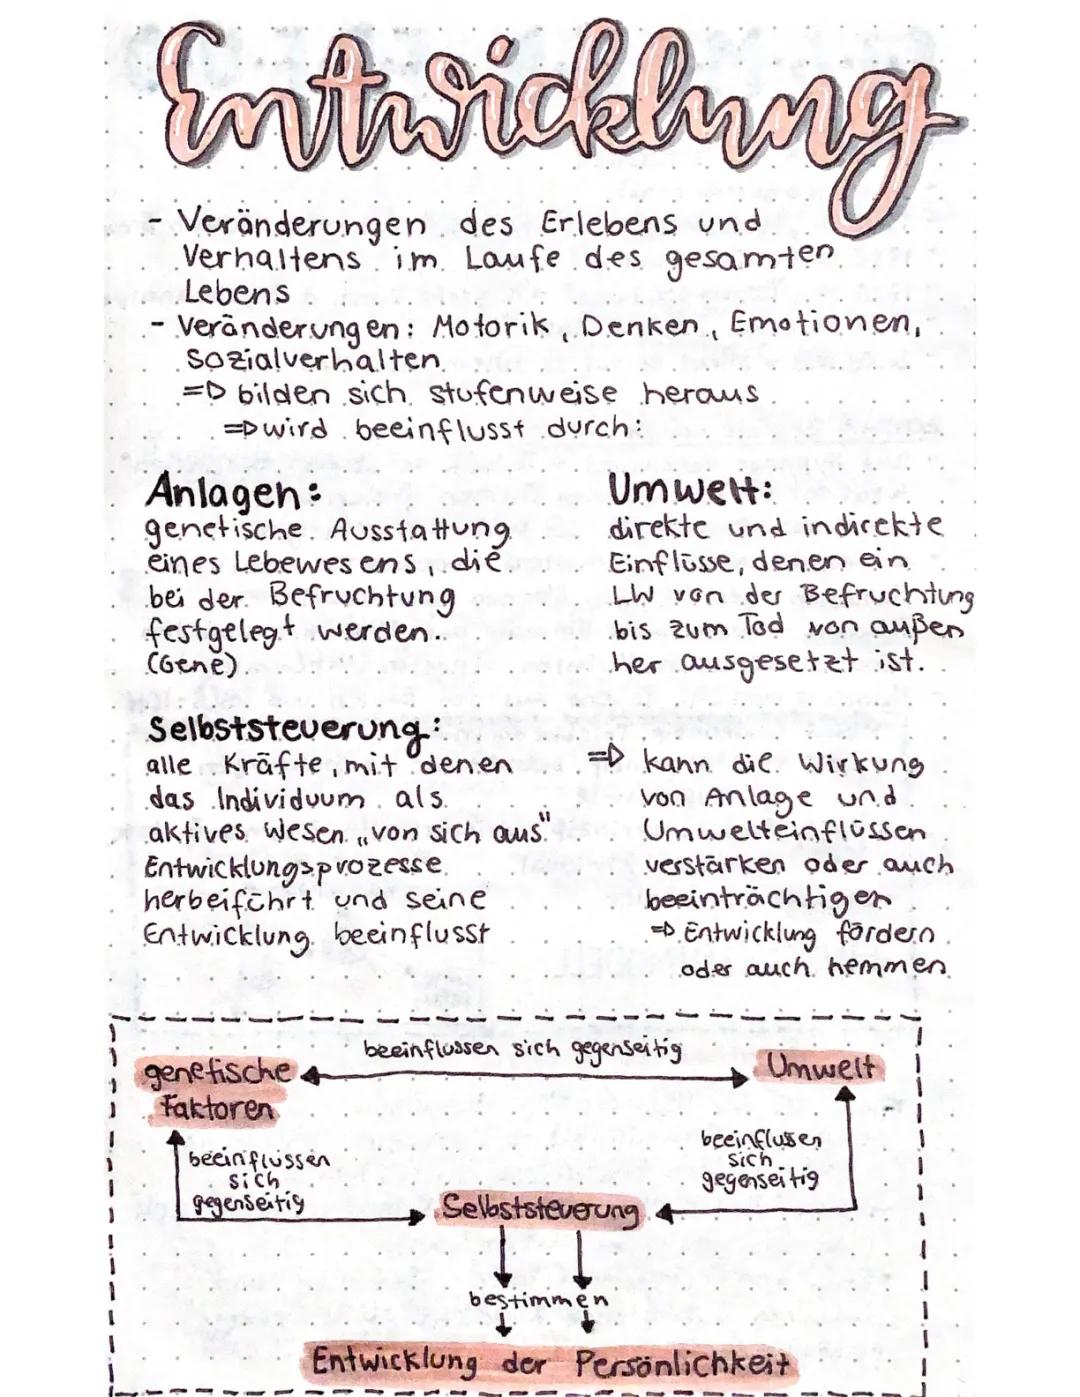 Entwicklung
- Veränderungen des Erlebens und
Verhaltens im Laufe des gesamten
Lebens
- Veränderungen: Motorik, Denken, Emotionen,
Sozialverhalten
=> bilden sich stufenweise heraus
=> wird beeinflusst durch:
Anlagen:
genetische Ausstattung
eines Lebewesens, die
bei der Befruchtung
festgelegt werden.
(Gene)
Umwelt:
direkte und indirekte
Einflüsse, denen ein
LW von der Befruchtung
bis zum Tod von außen
her ausgesetzt ist.
Selbststeuerung:
alle Kräfte, mit denen
das Individuum als
aktives Wesen „von sich aus"
Entwicklungsprozesse
herbeiführt und seine
Entwicklung beeinflusst
=> kann die Wirkung
von Anlage und
Umwelteinflüssen
verstärken oder auch
beeinträchtigen
=> Entwicklung fördern
oder auch hemmen
beeinflussen sich gegenseitig
genetische
Faktoren
Umwelt
beeinflussen
sich
gegenseitig
beeinflussen
sich
gegenseitig
Selbststeuerung
bestimmen
Entwicklung der Persönlichkeit